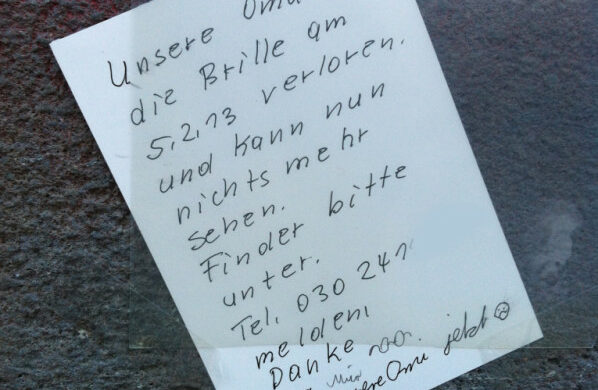 Unsere Oma
die Brille am
5.2.13 verloren.
und kann nun
nichts mehr
sehen.
Finder bitte
unter.
Tel. 030 241
melden!
Danke
unsere Oma jetzt ☹